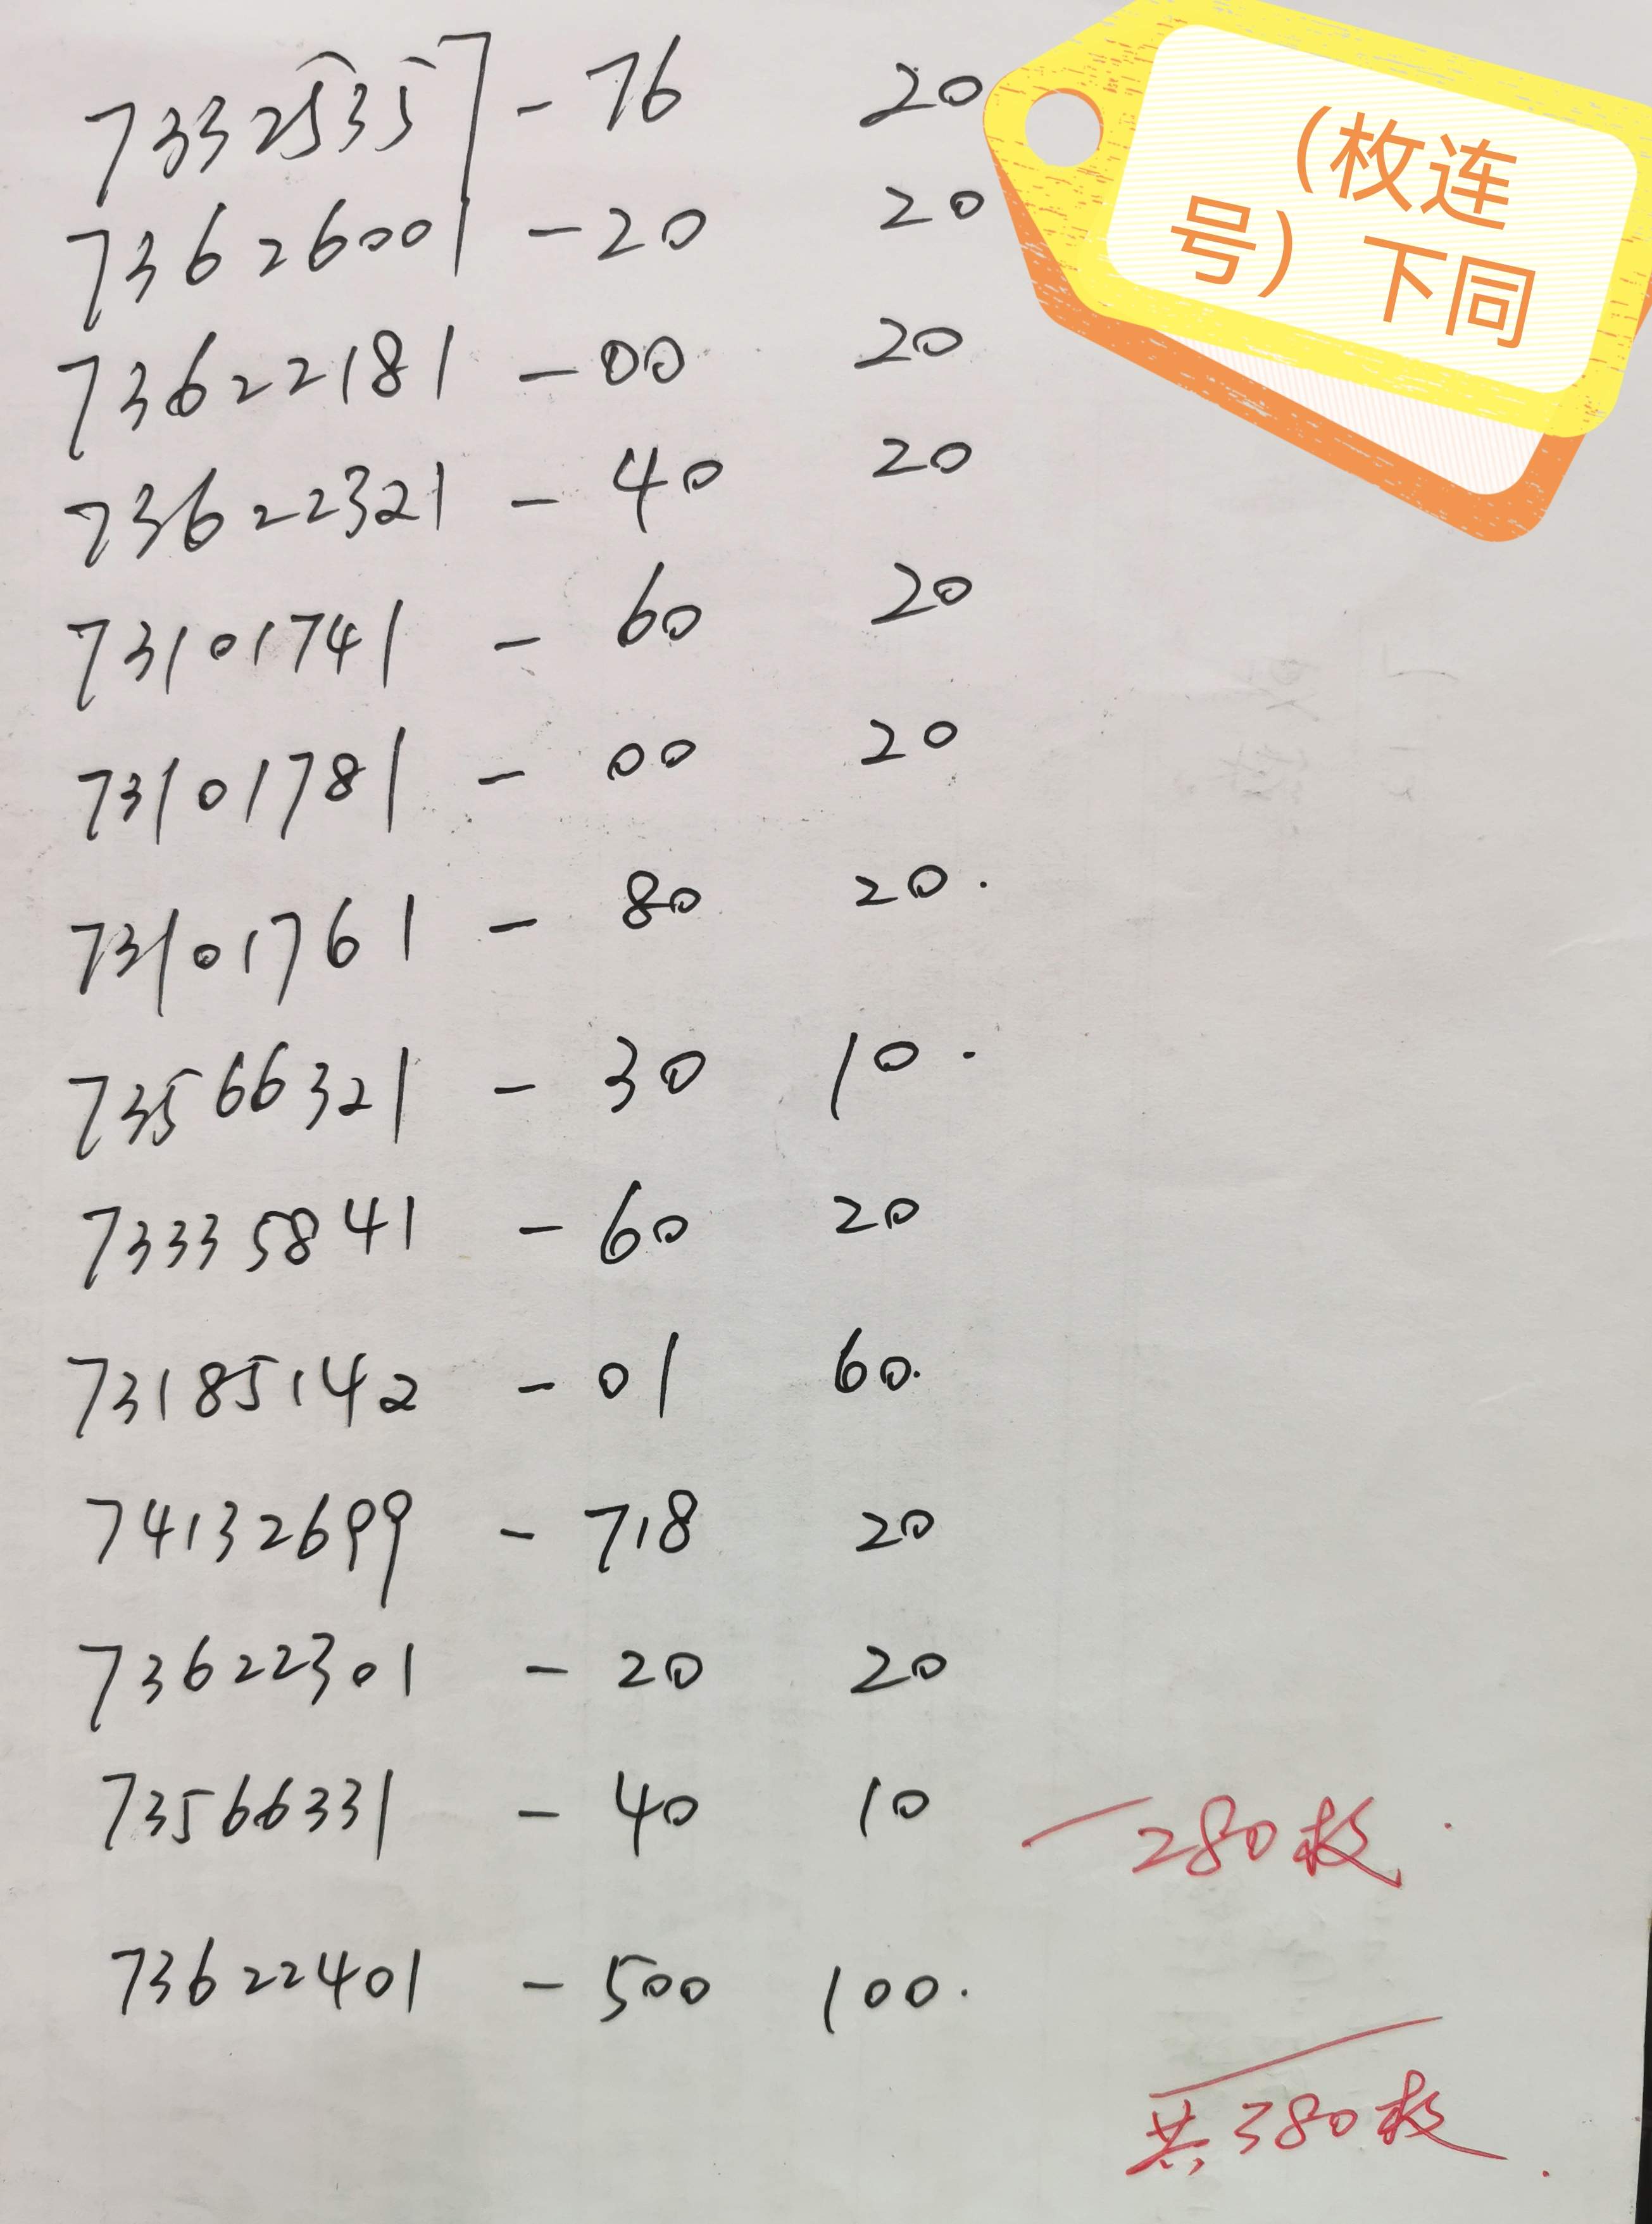 73325357 - 76 20
(枚连
号) 下同
73626001 - 20 20
73622181 - 00 20
73622321 - 40 20
73101741 - 60 20
73101781 - 00 20
73101761 - 80 20.
73566321 - 30 10.
73335841 - 60 20
73185142 - 01 60.
74132699 - 718 20
73622301 - 20 20
73566331 - 40 10
280枚.
73622401 - 500 100.
共380枚.